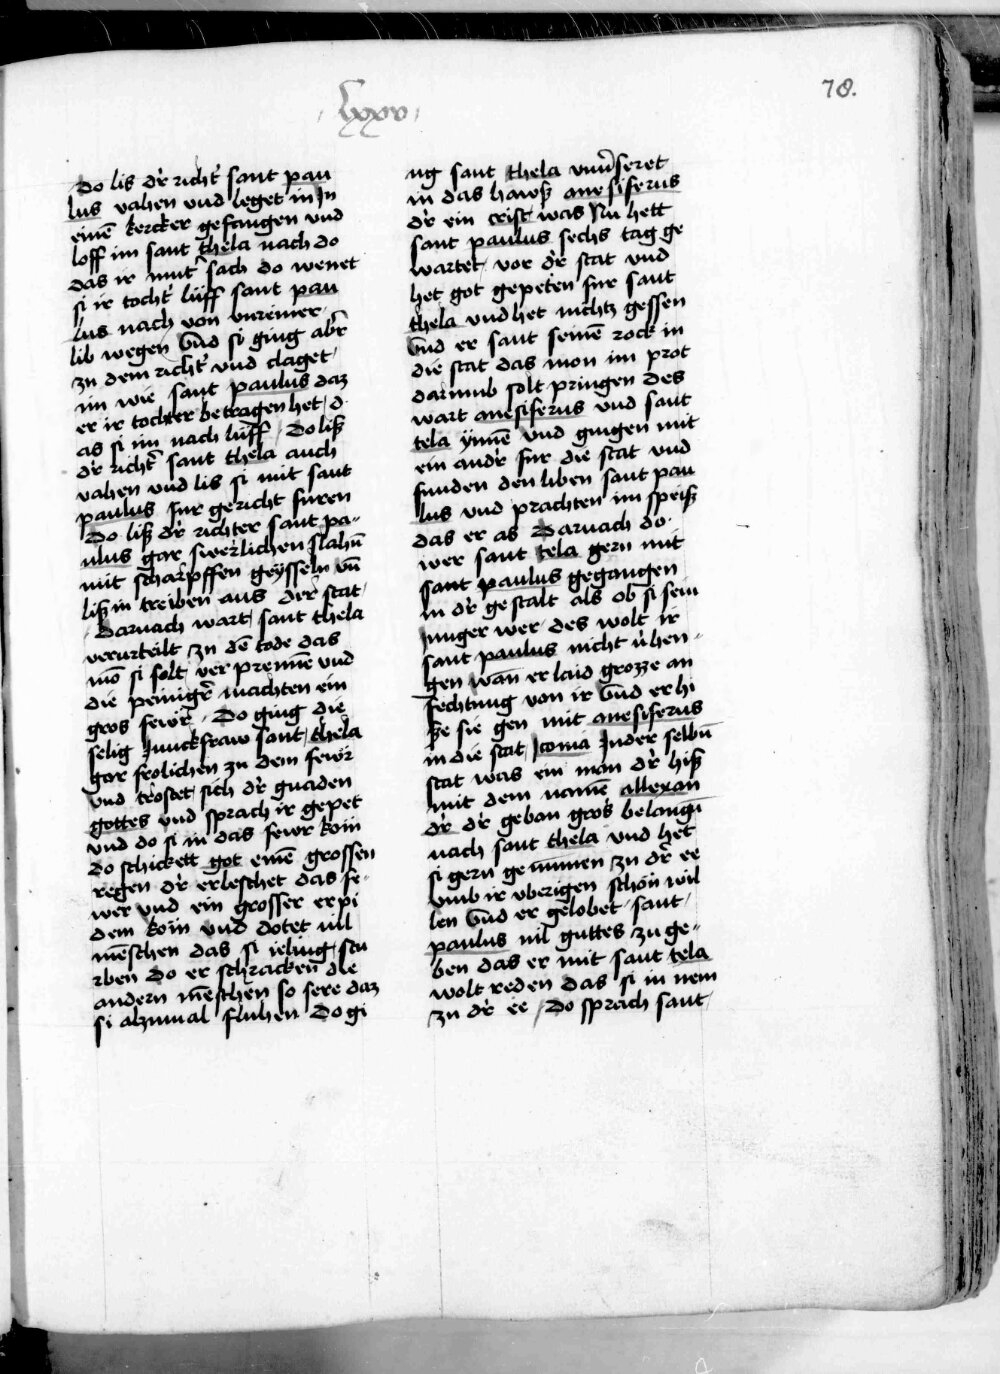 lxxv
78.
Do lis dr̕ richt̕ sant pau
lus vahen vnd leget in jn
einē kercker gefangen vnd
loff im sant thela nach do
das ir mut̕ sach do wenet
si ir tocht̕ lüff sant pau
lus nach von vnreiner
lib wegen Vnd si ging abr̕
zu dem richt̕ vnd claget
im wie sant paulus daz
er ir tochter betragen het d
as si im nach lüff / Do liß
dr̕ richt̕ sant thela auch
vahen vnd lis si mit sant
paulus fur gericht furen
Do liß dr̕ richter sant pa-
ulus gar swerlichen slahn̄
mit scharpffen geysseln vn̄
liß in treiben aus der stat
Darnach wart sant thela
verurteilt zu dē tode das
mō si solt ver prennē vnd
die peinigr̕ machten ein
gros fewr̕ . Do ging die
selig Junckfraw sant thela
gar frolichen zu dem fewr
vnd trostet sich dr̕ gnaden
gottes vnd sprach ir gepet
vnd do si in das fewr kom
do schickett got einē grossen
regen dr̕ erleschet das fe-
wer vnd ein grosser erpi
dem kom vnd dotet uil
mēschen das si ieling stu
rben Do er schracken die
andern mēschen so sere daz
si alzumal fluhen Do gi
ng sant thela vnu̕seret
in das hawß anesiferus
dr̕ ein crist was Nu hett
sant paulus sechs tag ge
wartet vor dr̕ stat vnd
het got gepeten fur sant
thela vnd het nichtz gessen
Vnd er sant seinē rock in
die stat das mon im prot
darumb solt pringen des
wart anesiferus vnd sant
tela ynnē vnd gingen mit
ein andr̕ fur die stat vnd
funden den liben sant pau
lus vnd prachten im speiß
das er as Darnach do
wer sant tela gern mit
sant paulus gegangen
in dr̕ gestalt als ob si sein
junger wer des wolt ir
sant paulus nicht u̕hen-
gen wan̄ er laid grozze an
fechtung von ir Vnd er hi
ße sie gen mit anesiferus
in die stat Iconia Inder selbn̄
stat was ein man dr̕ hiß
mit dem namē allexan
dr̕ dr̕ geban gros belangn̄
nach sant thela vnd het
si gern genūmen zu dr̕ ee
vmb ir vberigen schon wil
len Vnd er gelobet sant
paulus uil guttes zu ge-
ben das er mit sant tela
wolt reden das si in nem
zu dr̕ ee / Do sprach sant